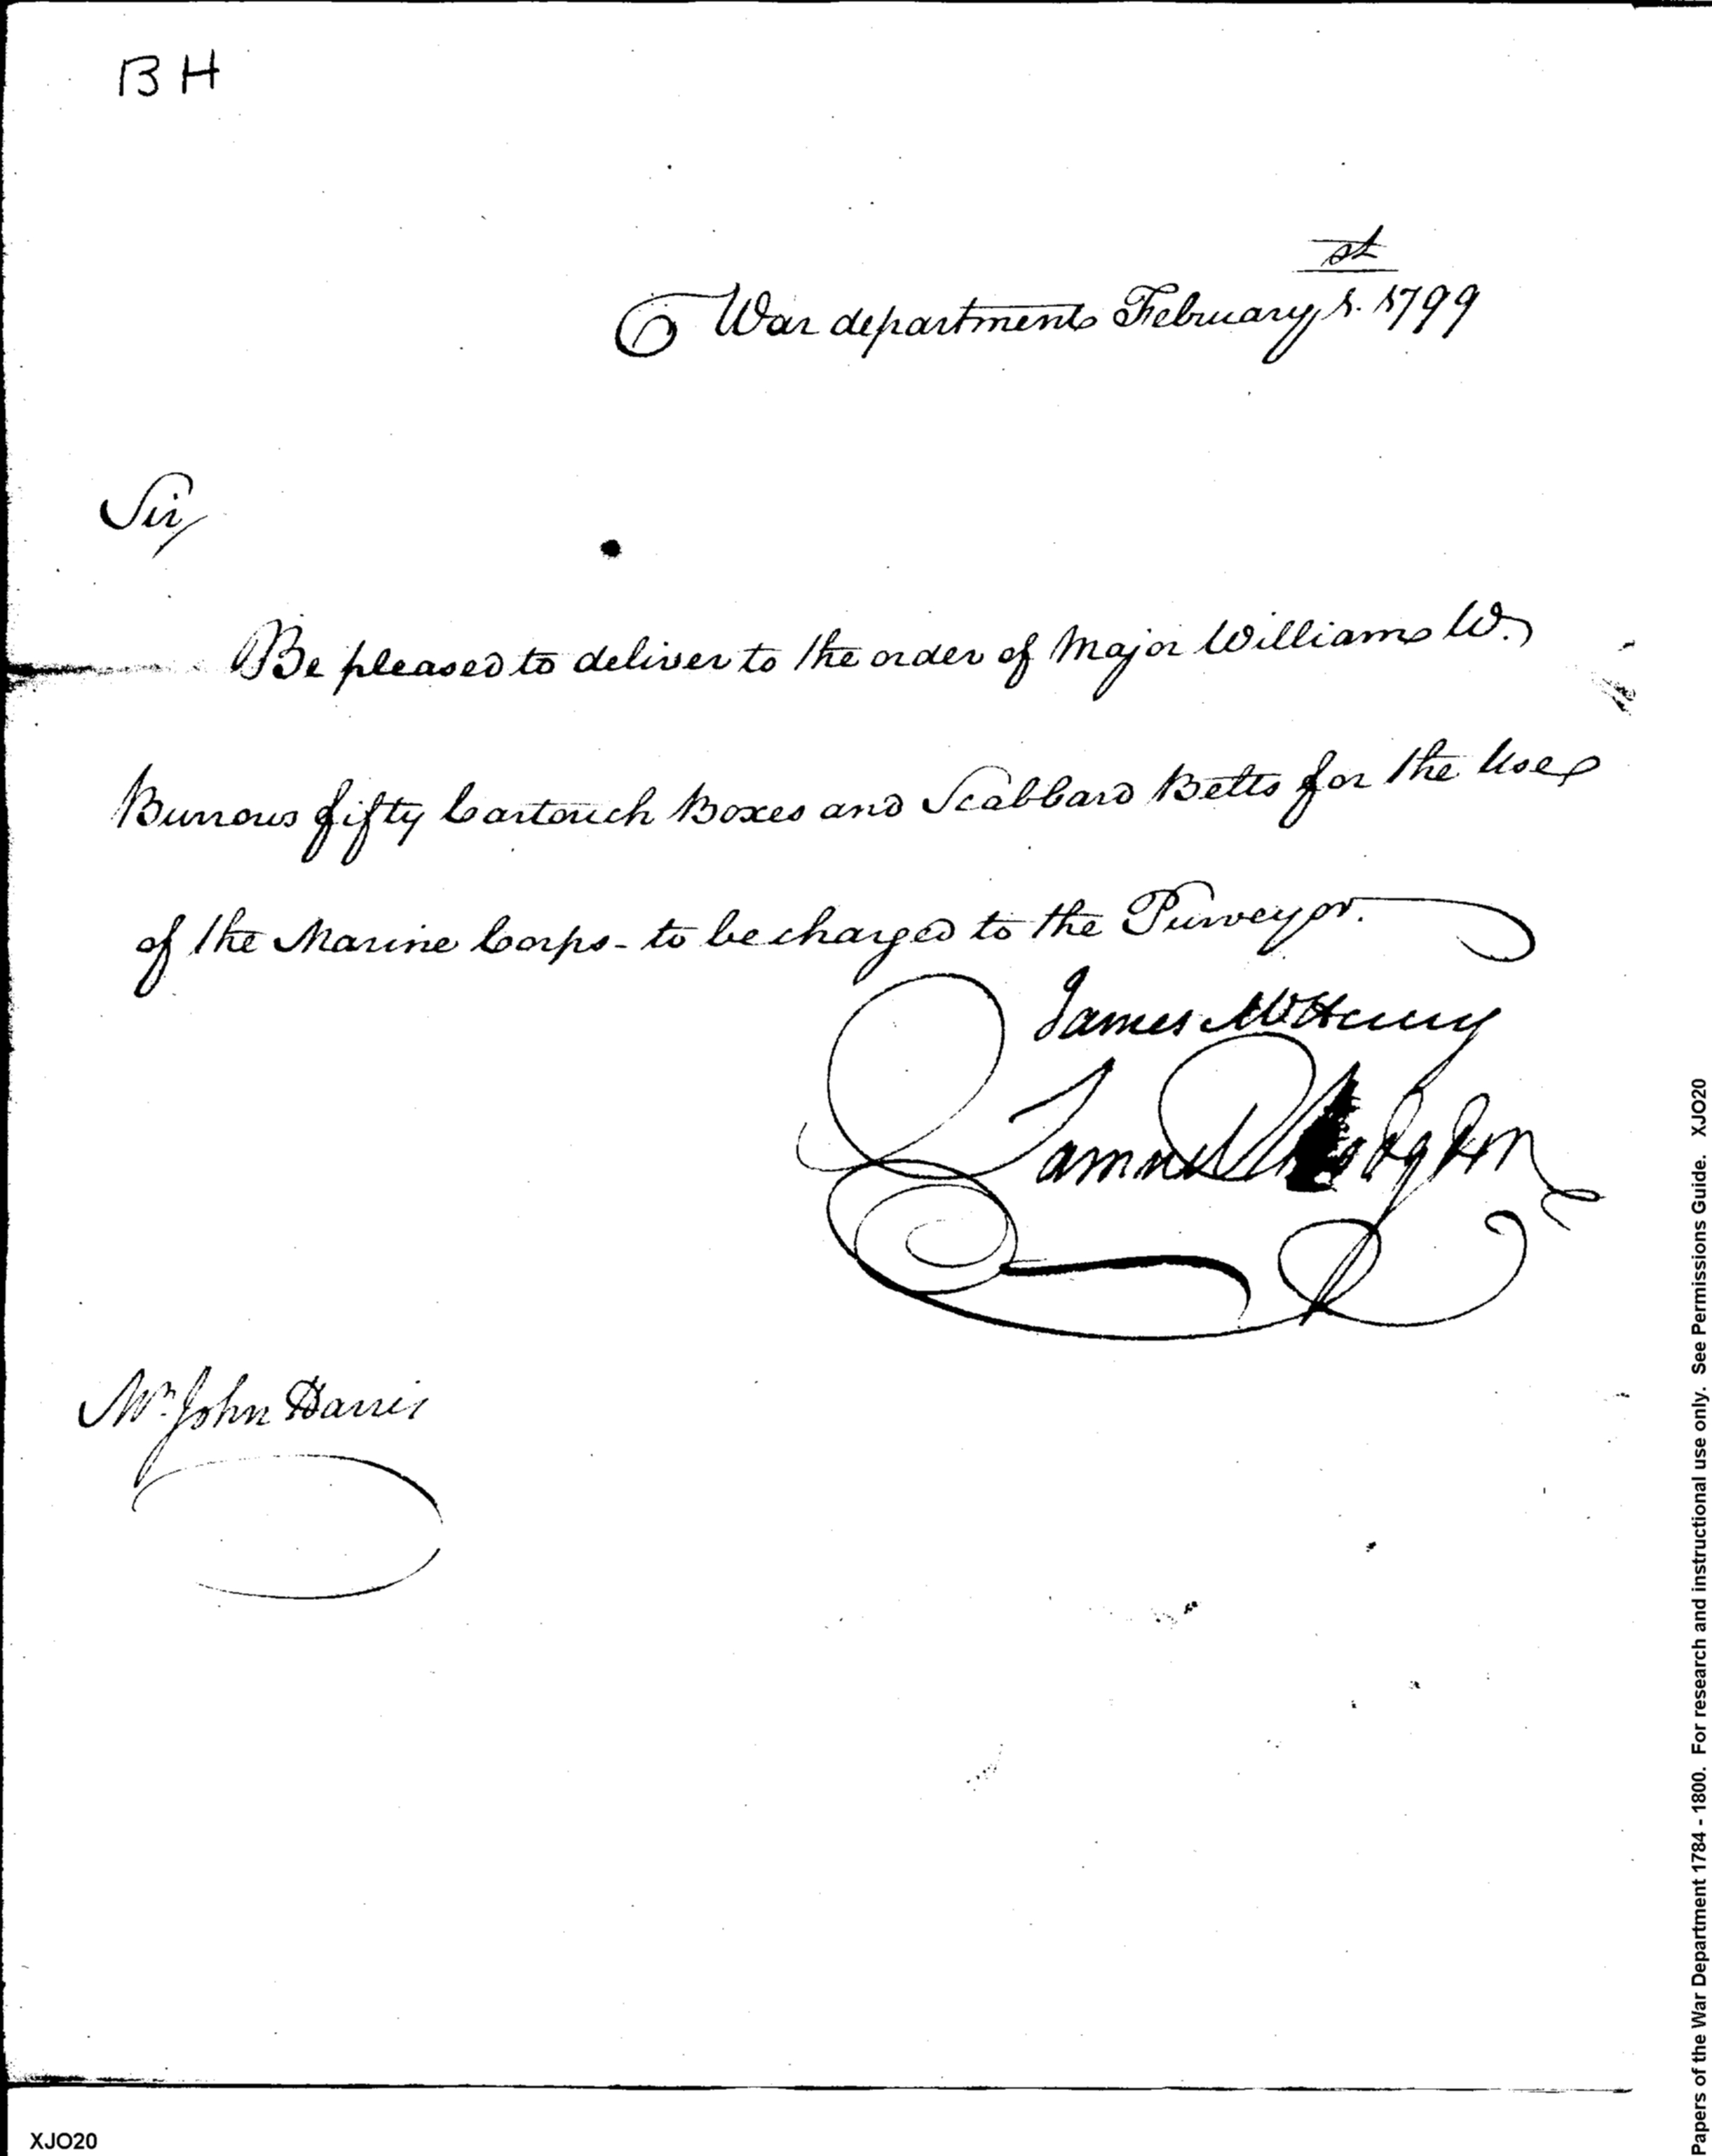 BH
War department February 1.st 1799
Sir,
Be pleased to deliver to the order of Major William W.
Burrows fifty Cartouch Boxes and Scabbard Belts for the Use
of the Marine Corps - to be charged to the Purveyor.
James McHenry
Samuel Hodgdon
Mr. John Harris
XJO20
Papers of the War Department 1784 - 1800. For research and instructional use only. See Permissions Guide. XJO20